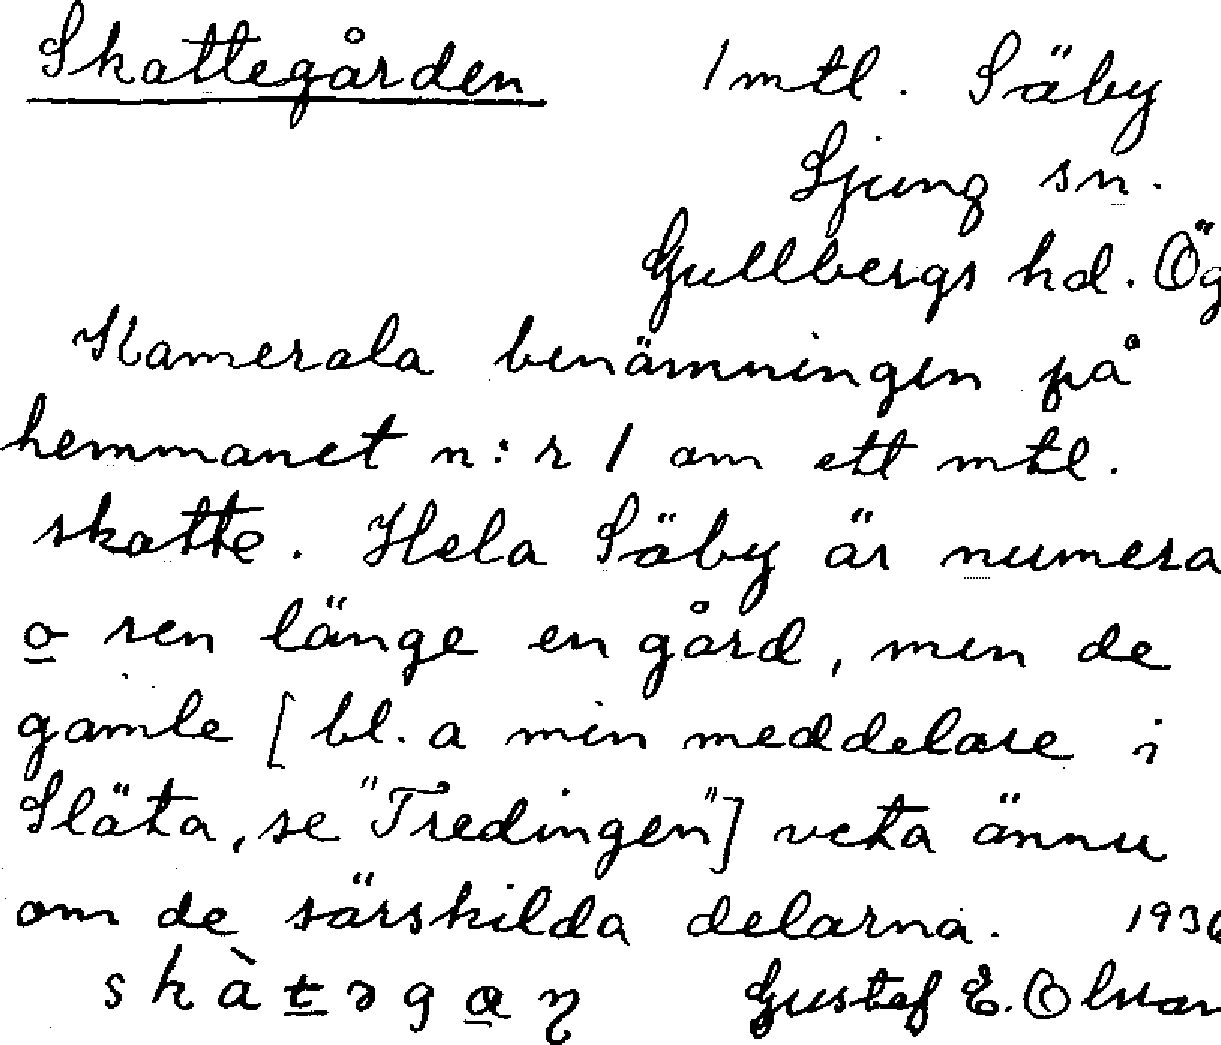 Skattegården 1 mtl. Säby
Ljung sn.
Gullbergs hd. Ög
Kamerala benämningen på
hemmanet n:r 1 om ett mtl.
skatte. Hela Säby är numera
o ren länge en gård, men de
gamle [bl. a min meddelare i
Släta, se "Tredingen"] veta ännu
om de särskilda delarna. 1936
Gustef E. Olsson